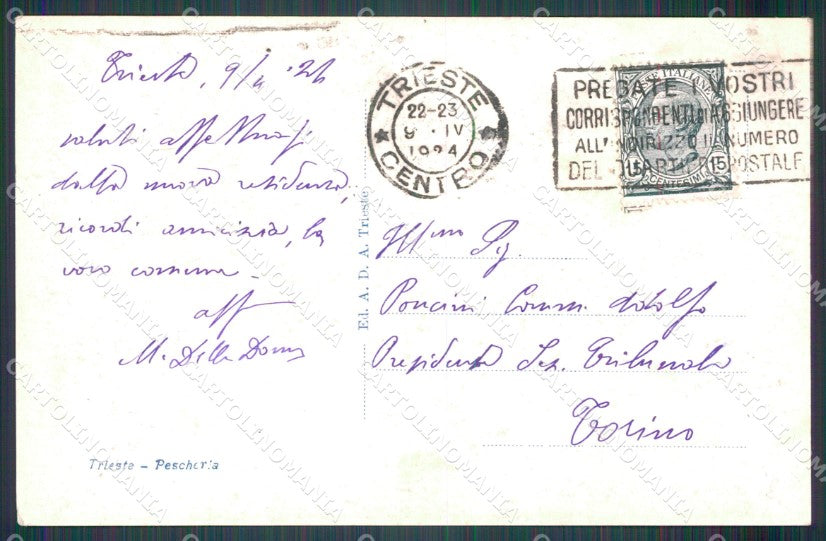 Trieste, 9/4 '24
saluti affettuosi
dalla nuova residenza,
ricordi amicizia, la
voro comune -
aff
M. Delle Donne
Trieste - Pescheria
Ed. A. D. A. Trieste
TRIESTE
22-23
9 · IV
1924
CENTRO
PREGATE I VOSTRI
CORRISPONDENTI DI AGGIUNGERE
ALL'INDIRIZZO IL NUMERO
DEL QUARTIERE POSTALE
POSTE ITALIANE
15 15
CENTESIMI
Illmo Sig.
Poncini Comm. Adolfo
Presidente Sez. Tribunale
Torino
CARTOLINOMANIA